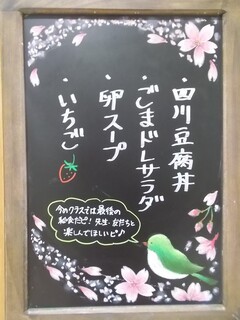 ・四川豆腐丼
・ごまドレサラダ
・卵スープ
・いちご
今のクラスでは最後の
給食だピ！先生・友だちと
楽しんでほしいピ♪